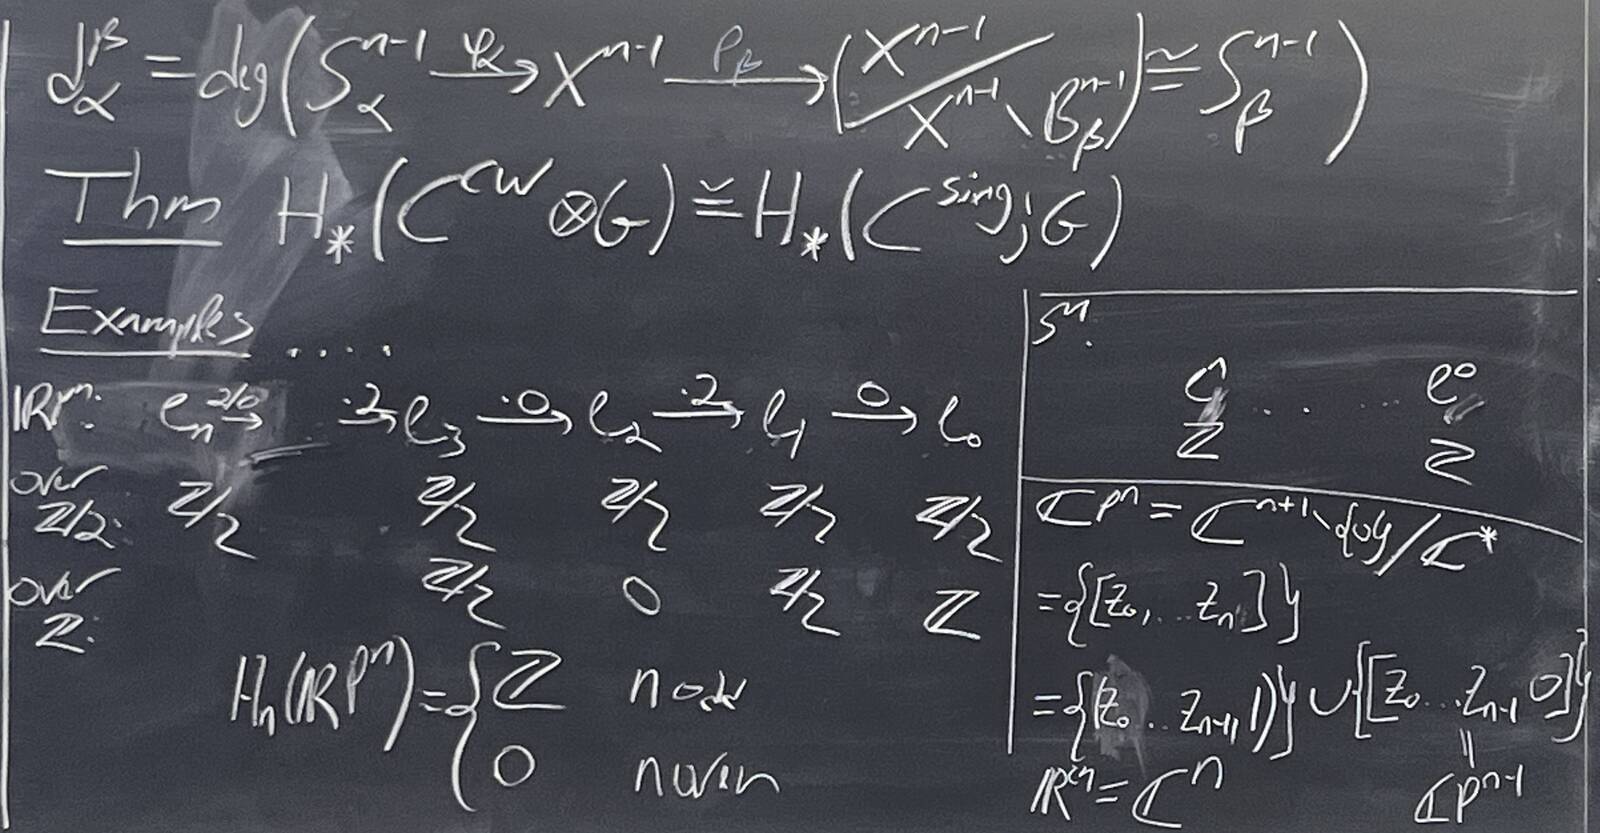 d_α^β = deg(S_α^{n-1} →^{φ_α} X^{n-1} →^{p_β} (X^{n-1} / X^{n-1} \ B_β^{n-1}) ≅ S_β^{n-1})
Thm H_*(C^{CW} ⊗ G) ≅ H_*(C^{sing}; G)
Examples ....
RP^n: e_n →^{2/0} ... →^{·2} e_3 →^{·0} e_2 →^{·2} e_1 →^{0} e_0
over Z/2: Z/2 Z/2 Z/2 Z/2 Z/2
over Z: Z/2 0 Z/2 Z
H_n(RP^n) = { Z n odd
0 n even
S^n:
e^n ... ... e^0
Z Z
CP^n = C^{n+1} \ {0} / C^*
= {[z_0, ... z_n]}
= {(z_0 .. z_{n-1}, 1)} ∪ {[z_0 ... z_{n-1} 0]}
R^{2n} = C^n = CP^{n-1}